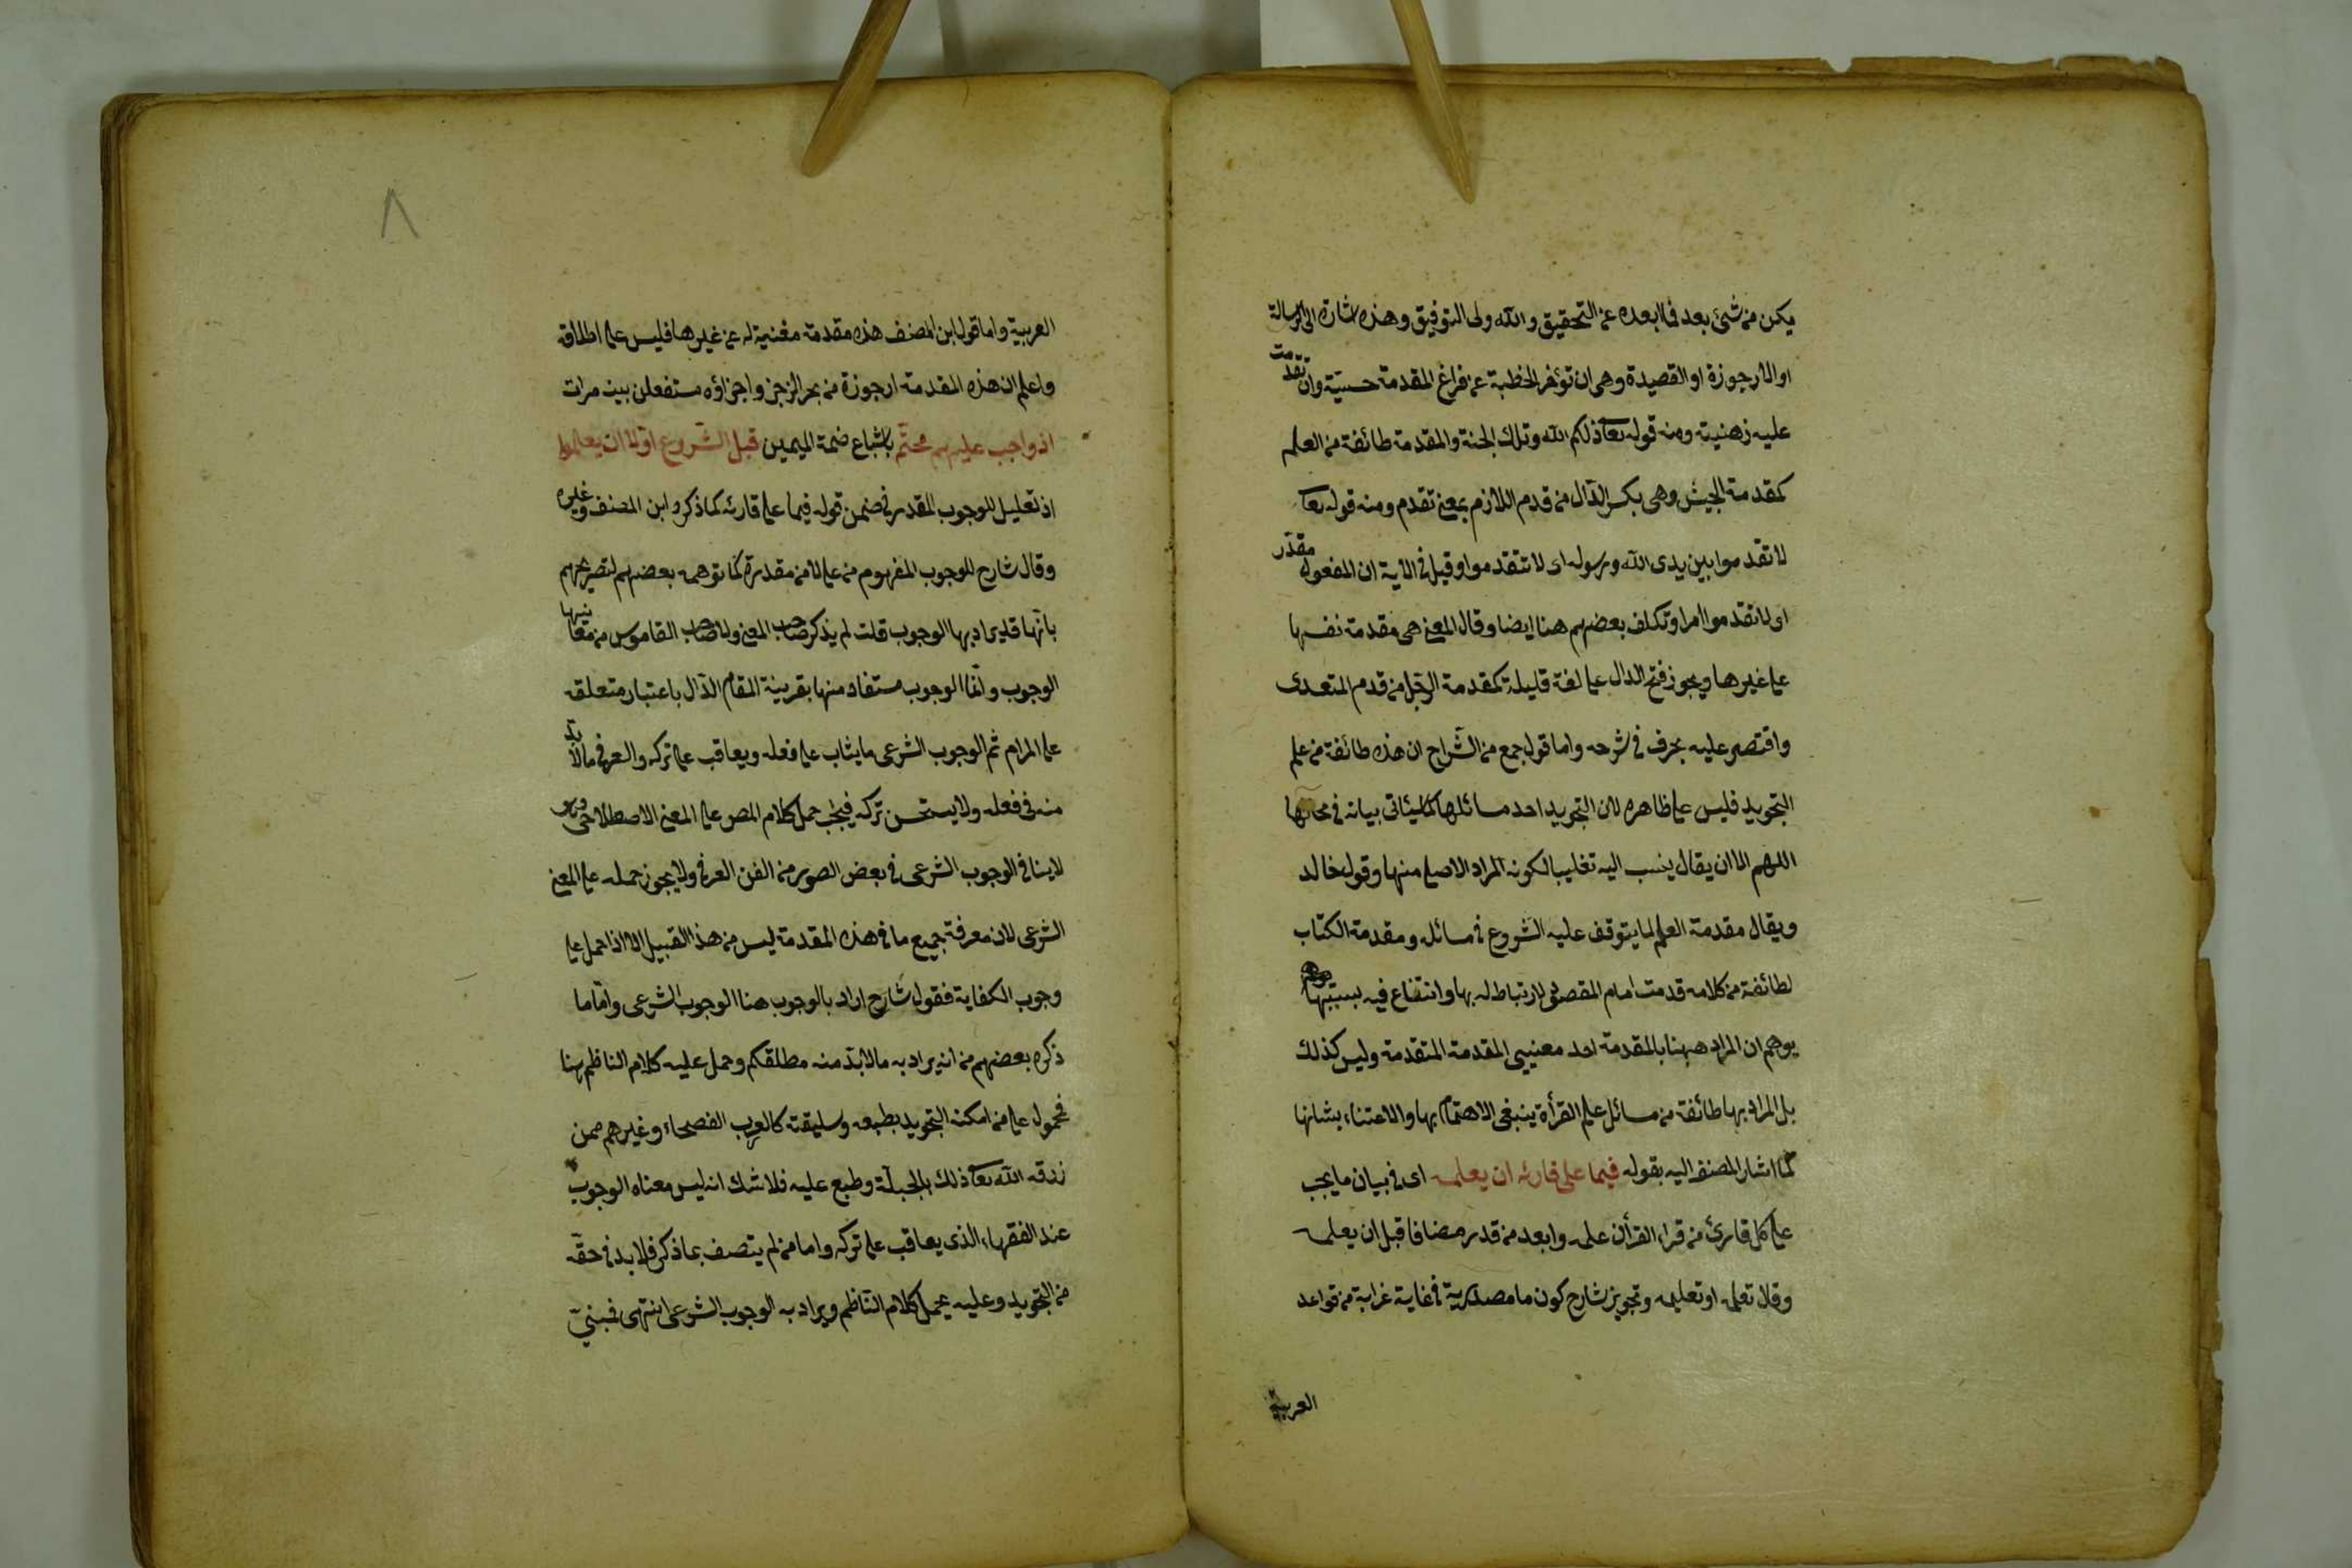 يكن من شئ بعد فما بعده عن التحقيق والله ولى التوفيق وهذه اشارة الى الرسالة
او الارجوزة او القصيدة وهى ان تؤخر الخطبة عن فراغ المقدمة حسيّة وان تقدمت
عليه ذهنية ومنه قوله تعا ذلكم الله وتلك الجنة والمقدمة طائفة من العلم
كمقدمة الجيش وهى بكسر الدّال من قدم اللازم بمعنى تقدم ومنه قوله تعا
لا تقدموا بين يدى الله ورسوله اى لا تتقدموا وقيل فى الآية ان المفعول مقدّر
اى لا تقدموا امرا وتكلف بعضهم هنا ايضا وقال المعنى هى مقدمة نفسها
على غيرها ويجوز فتح الدال على لغة قليلة كمقدمة الرّجل من قدم المتعدى
واقتصر عليه بحرق فى شرحه واما قول جمع من الشّراح ان هذه طائفة من علم
التجويد فليس على ظاهره لان التجويد احد مسائلها كما سيأتى بيانه فى محالها
اللهم الا ان يقال ينسب اليه تغليبا لكونه المراد الاصلى منها وقول خالد
ويقال مقدمة العلم لما يتوقف عليه الشروع فى مسائله ومقدمة الكتاب
لطائفة من كلامه قدمت امام المقصود لارتباط له بها وانتفاع فيه بسببها
يوهم ان المراد ههنا بالمقدمة احد معنيى المقدمة المتقدمة وليس كذلك
بل المراد بها طائفة من مسائل علم القرأة ينبغى الاهتمام بها والاعتناء بشانها
كما اشار المصنف اليه بقوله فيما على قارئه ان يعلمه اى فى بيان ما يجب
على كل قارئ من قراء القرأن علمه وابعد من قدر مضافا قبل ان يعلمه
وقال تعلمه او تعليمه وتجويز شارح كون ما مصدرية فى غاية غرابة من قواعد
العربية
٨
العربية واما قول ابن المصنف هذه مقدمة مغنية له عن غيرها فليس على اطلاقه
واعلم ان هذه المقدمة ارجوزة من بحر الرجز واجزاؤه مستفعلن بيت مرات
اذ واجب عليهم محتّم باشباع ضمة الميمين قبل الشّروع اوّلا ان يعلموا
اذ تعليل للوجوب المقدر فى ضمن قوله فيما على قارئه كما ذكره ابن المصنف وغيره
وقال شارح للوجوب المفهوم من على لا من مقدرة كما توهمه بعضهم لتصريحهم
بانّها قد يراد بها الوجوب قلت لم يذكر صاحب المغنى ولا صاحب القاموس من معانيها
الوجوب وانّما الوجوب مستفاد منها بقرينة المقام الدّال باعتبار متعلقه
على المرام ثم الوجوب الشرعى ما يثاب على فعله ويعاقب على تركه والعرفى ما لا بدّ
منه فى فعله ولا يستحسن تركه فيجب حمل كلام المص على المعنى الاصطلاحى وهو
لا ينافى الوجوب الشرعى فى بعض الصور من الفن العرفى ولا يجوز حمله على المعنى
الشرعى لان معرفة جميع ما فى هذه المقدمة ليس من هذا القبيل الا اذا حمل على
وجوب الكفاية فقول شارح اراد بالوجوب هنا الوجوب الشرعى وامّا ما
ذكره بعضهم من انه يراد به ما لا بدّ منه مطلقكم وحمل عليه كلام الناظم هنا
فمحمول على من امكنه التجويد بطبعه وسليقته كالعرب الفصحاء وغيرهم ممن
رزقه الله تعا ذلك بالجبلّة وطبع عليه فلا شك انه ليس معناه الوجوب
عند الفقهاء الذى يعاقب على تركه واما من لم يتصف بما ذكر فلا بد فى حقّه
من التجويد وعليه يحمل كلام النّاظم ويراد به الوجوب الشرعى انتهى فمبنىّ